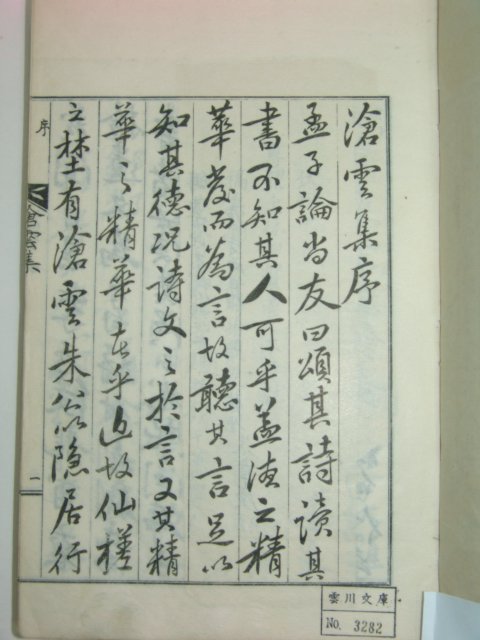 滄雲集序
孟子論尚友曰頌其詩讀其
書不知其人可乎蓋德之精
華發而為言故聽其言足以
知其德況詩文之於言又其精
華之精華者乎近故仙槎
之埜有滄雲朱公隐居行
序
滄雲集
一
雲川文庫
No. 3282